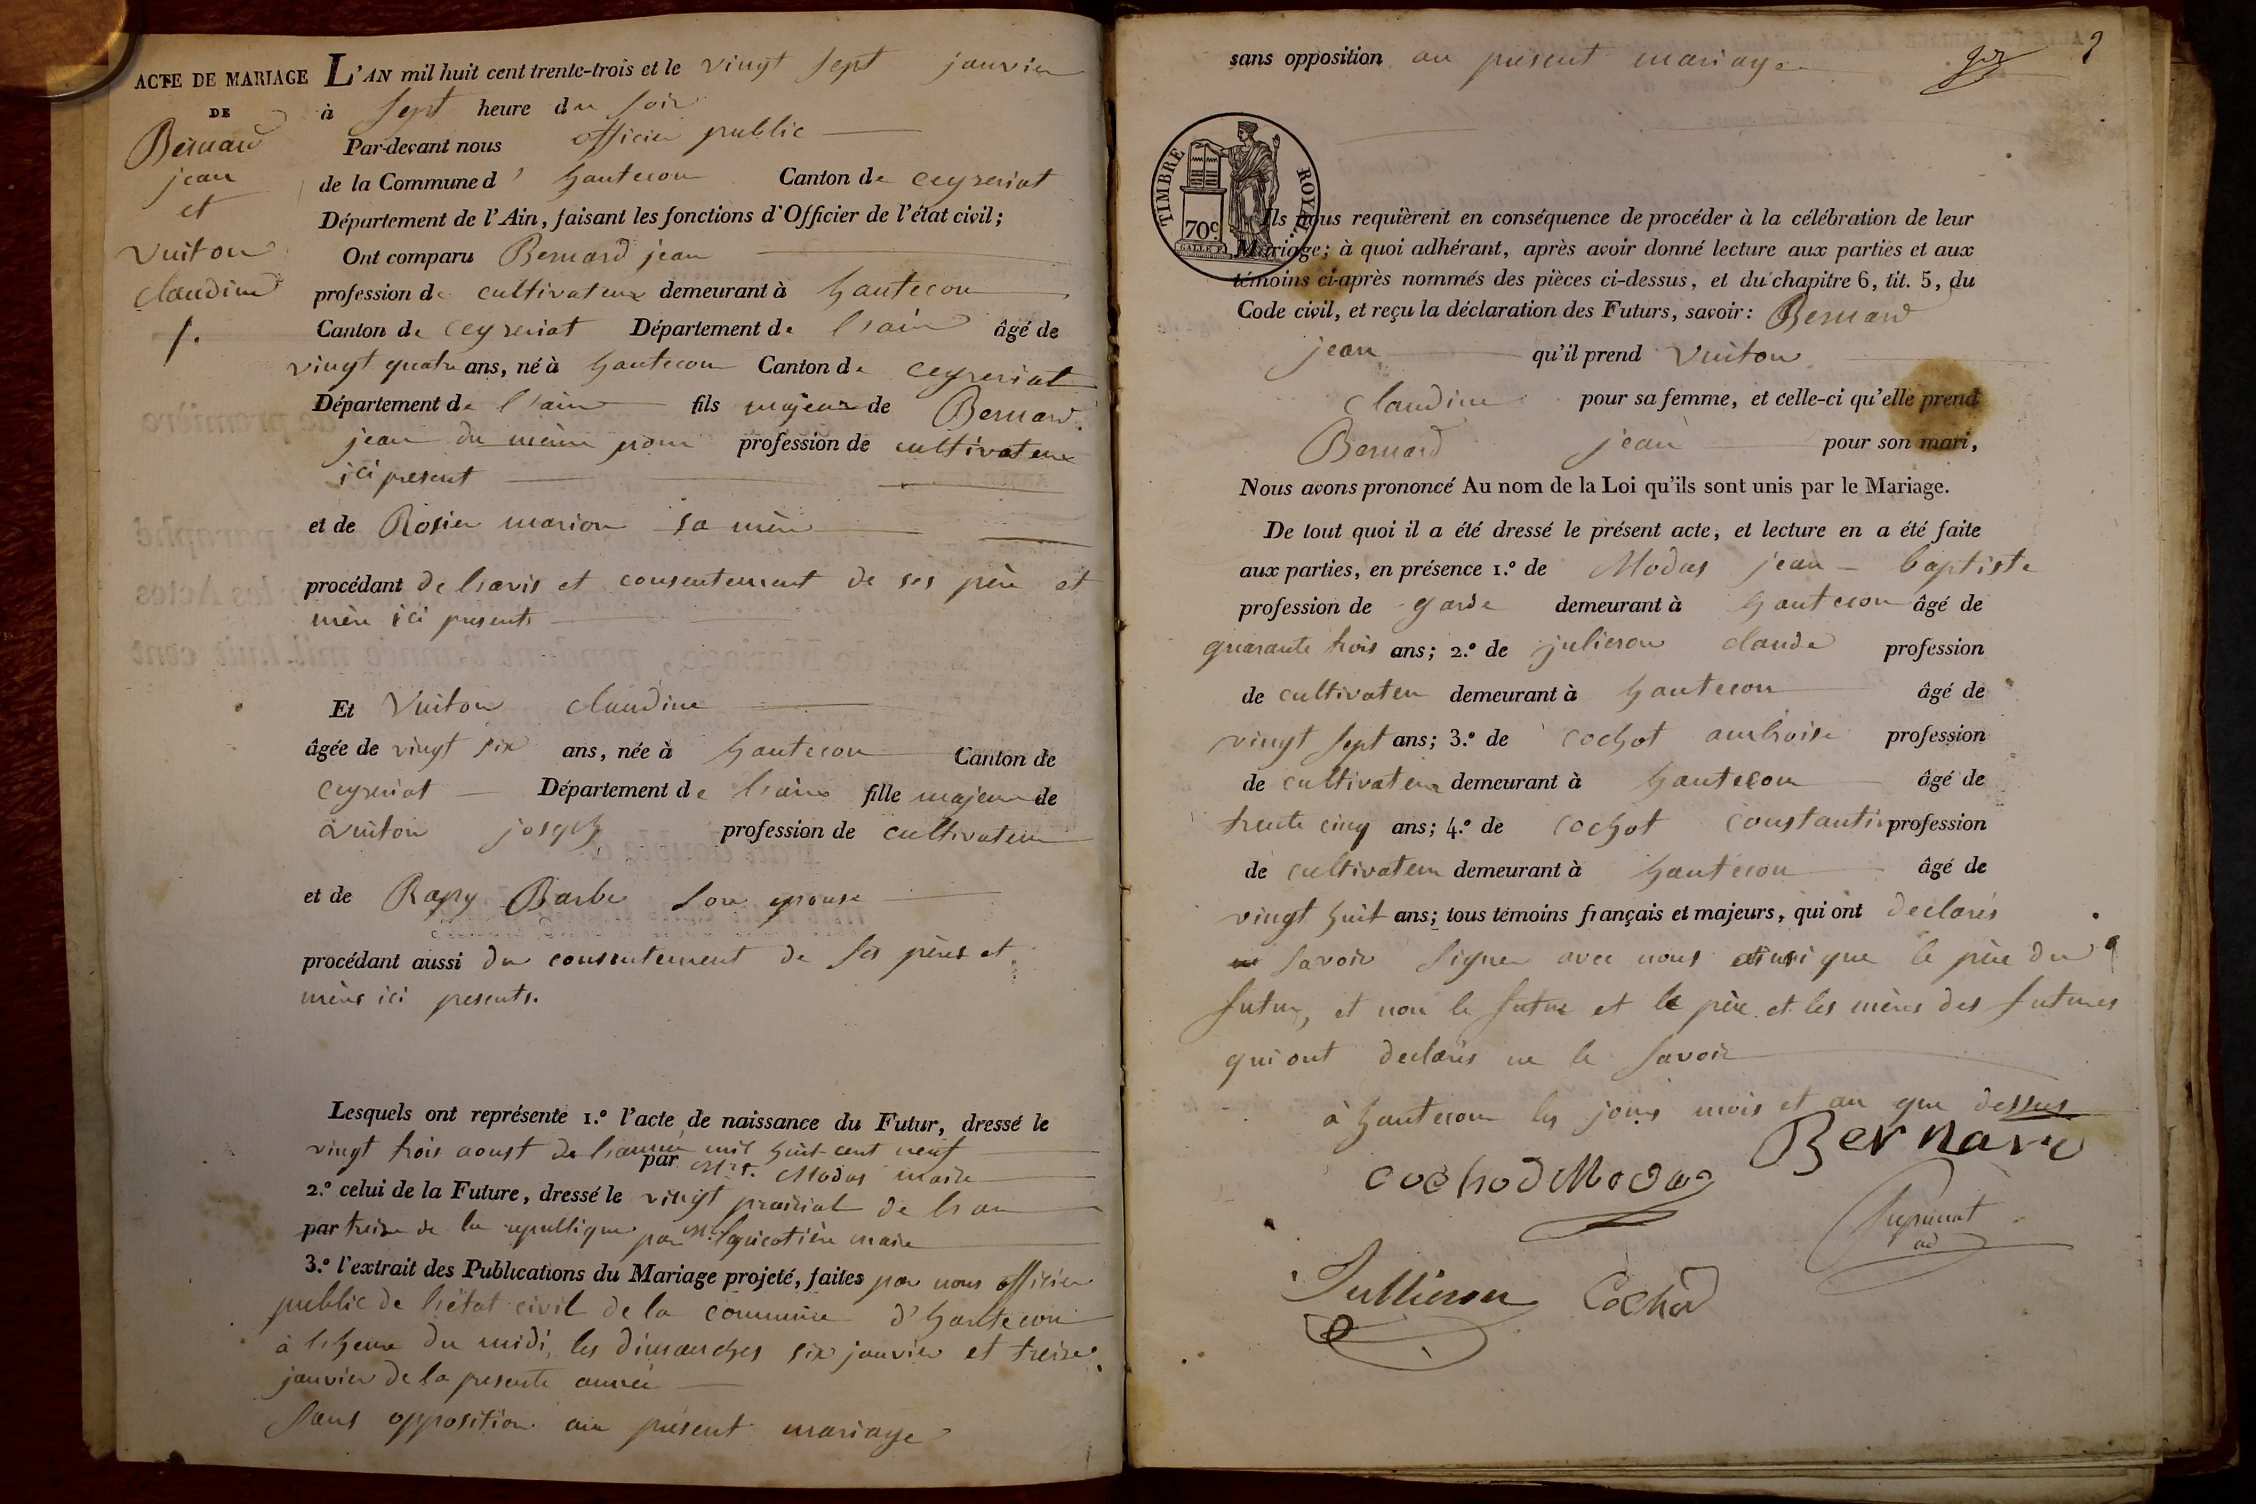 ACTE DE MARIAGE
DE
Bernard
jean
et
Vuiton
claudine
1.
L'AN mil huit cent trente-trois et le vingt sept janvier
à sept heure du soir
Par-devant nous officier public
de la Commune d' hautecour Canton de ceyzeriat
Département de l'Ain, faisant les fonctions d'Officier de l'état civil;
Ont comparu Bernard jean
profession de cultivateur demeurant à hautecour
Canton de ceyzeriat Département de l'ain âgé de
vingt quatre ans, né à hautecour Canton de ceyzeriat
Département de l'ain fils majeur de Bernard
jean du même nom profession de cultivateur
ici present
et de Rosier marion sa mère
procédant de l'avis et consentement de ses père et
mère ici presents
Et Vuiton claudine
âgée de vingt six ans, née à hautecour Canton de
ceyzeriat Département de l'ain fille majeure de
Vuiton joseph profession de cultivateur
et de Rapy Barbe son epouse
procédant aussi du consentement de ses pères et
mères ici presents.
Lesquels ont représenté 1.º l'acte de naissance du Futur, dressé le
vingt trois aoust de l'année mil huit cent neuf
par Modas maire
2.º celui de la Future, dressé le vingt prairial de l'an
par treize de la republique par maire
3.º l'extrait des Publications du Mariage projeté, faites par nous officier
public de l'état civil de la commune d'hautecour
à l'heure du midi, les dimanches six janvier et treize
janvier de la presente année
sans opposition au présent mariage
2
sans opposition au présent mariage
TIMBRE ROYAL
70c.
Ils nous requièrent en conséquence de procéder à la célébration de leur
Mariage; à quoi adhérant, après avoir donné lecture aux parties et aux
témoins ci-après nommés des pièces ci-dessus, et du chapitre 6, tit. 5, du
Code civil, et reçu la déclaration des Futurs, savoir: Bernard
jean qu'il prend Vuiton
claudine pour sa femme, et celle-ci qu'elle prend
Bernard jean pour son mari,
Nous avons prononcé Au nom de la Loi qu'ils sont unis par le Mariage.
De tout quoi il a été dressé le présent acte, et lecture en a été faite
aux parties, en présence 1.º de Modas jean-baptiste
profession de garde demeurant à hautecour âgé de
quarante trois ans; 2.º de julieron claude profession
de cultivateur demeurant à hautecour âgé de
vingt sept ans; 3.º de cochot ambroise profession
de cultivateur demeurant à hautecour âgé de
trente cinq ans; 4.º de cochot constantin profession
de cultivateur demeurant à hautecour âgé de
vingt huit ans; tous témoins français et majeurs, qui ont declarés
savoir signer avec nous ainsi que le père du
futur, et non le futur et le père et les mères des futures
qui ont declarés ne le savoir
à hautecour les jours mois et an que dessus
Bernard
cochod Modas
Jullieron Cochod